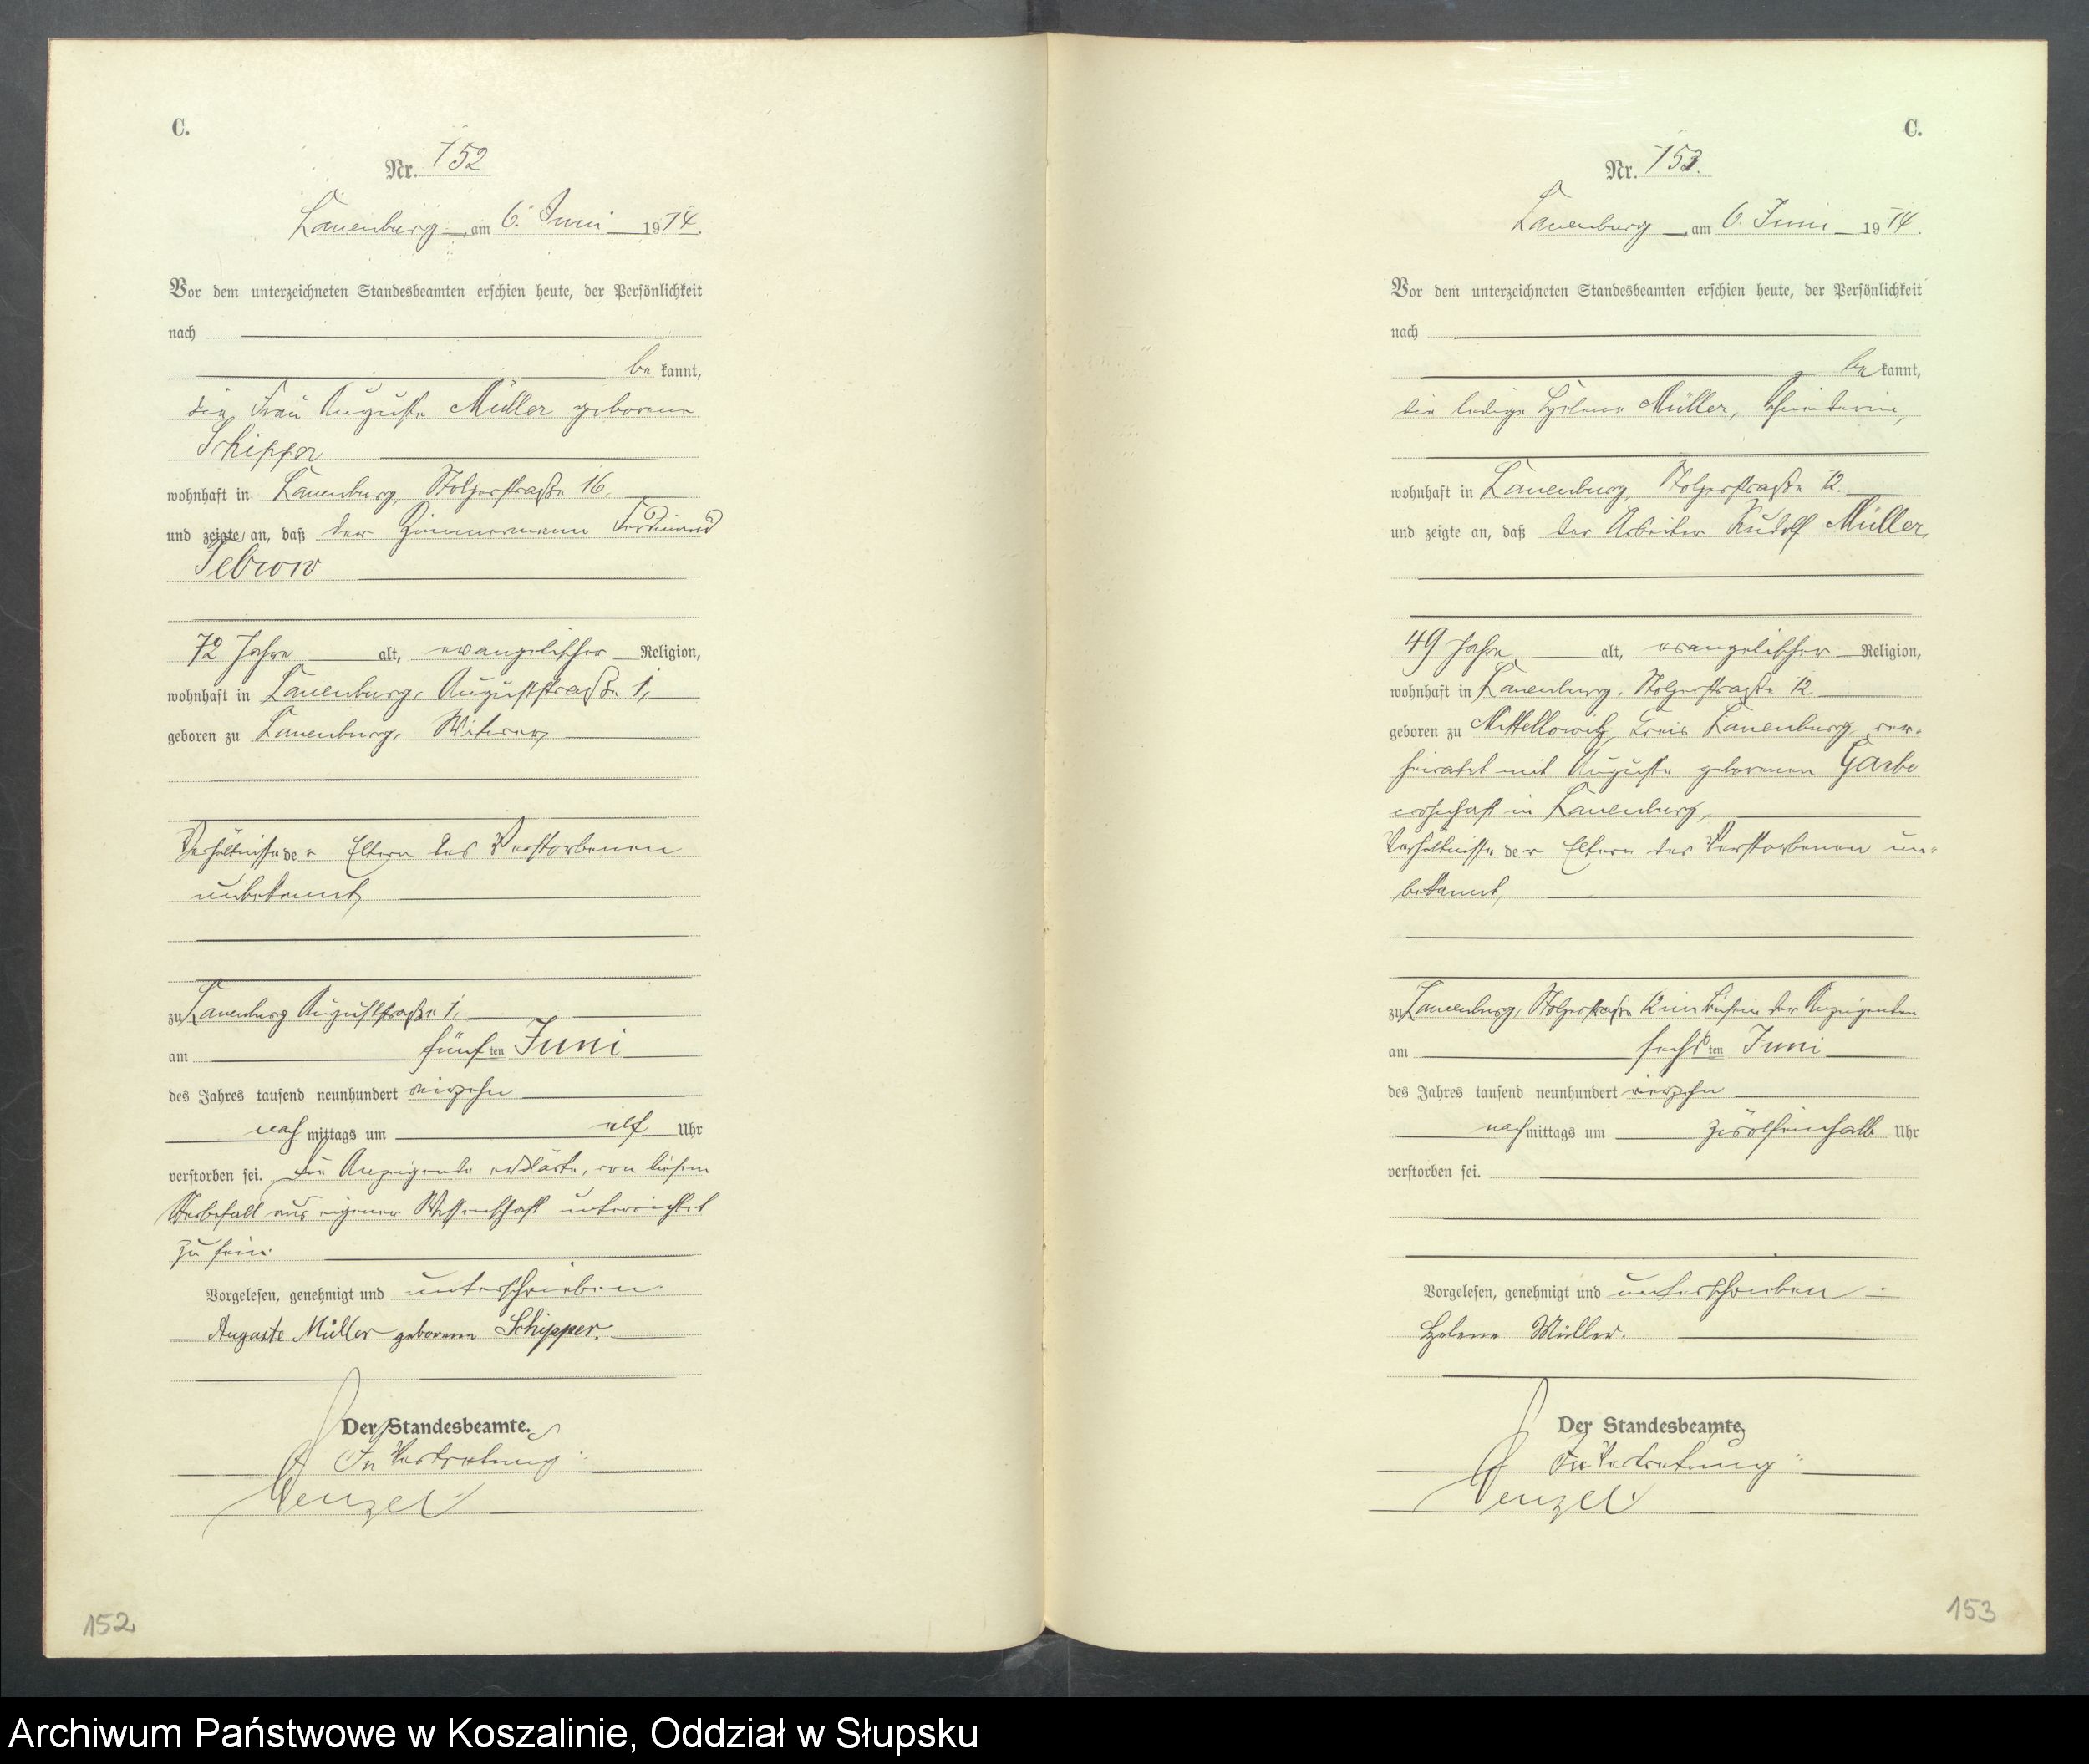 C.
Nr. 152
Lauenburg am 6. Juni 1914.
Vor dem unterzeichneten Standesbeamten erschien heute, der Persönlichkeit
nach
be kannt,
die Frau Auguste Müller geborene
Schipper
wohnhaft in Lauenburg, Stolperstraße 16,
und zeigte an, daß der Zimmermann Ferdinand
Tebrow
72 Jahre alt, evangelischer Religion,
wohnhaft in Lauenburg, Auguststraße 1,
geboren zu Lauenburg, Witwer,
Verhältnisse der Eltern des Verstorbenen
unbekannt,
zu Lauenburg Auguststraße 1,
am fünf ten Juni
des Jahres tausend neunhundert vierzehn
nach mittags um elf Uhr
verstorben sei. Die Anzeigende erklärte, von diesem
Sterbefall aus eigener Wissenschaft unterrichtet
zu sein.
Vorgelesen, genehmigt und unterschrieben
Auguste Müller geborene Schipper.
Der Standesbeamte.
In Vertretung:
Wenzel
152
C.
Nr. 153.
Lauenburg am 6. Juni 1914.
Vor dem unterzeichneten Standesbeamten erschien heute, der Persönlichkeit
nach
be kannt,
die ledige Helene Müller, Schneiderin,
wohnhaft in Lauenburg, Stolperstraße 12.
und zeigte an, daß der Arbeiter Rudolf Müller,
49 Jahre alt, evangelischer Religion,
wohnhaft in Lauenburg, Stolperstraße 12
geboren zu Mittellowitz, Kreis Lauenburg, ver-
heiratet mit Auguste geborenen Garbe
wohnhaft in Lauenburg,
Verhältnisse der Eltern des Verstorbenen un-
bekannt,
zu Lauenburg, Stolperstraße 12 im Beisein der Anzeigenden
am sechs ten Juni
des Jahres tausend neunhundert vierzehn
nach mittags um zwölfeinhalb Uhr
verstorben sei.
Vorgelesen, genehmigt und unterschrieben
Helene Müller.
Der Standesbeamte.
In Vertretung:
Wenzel
153
Archiwum Państwowe w Koszalinie, Oddział w Słupsku